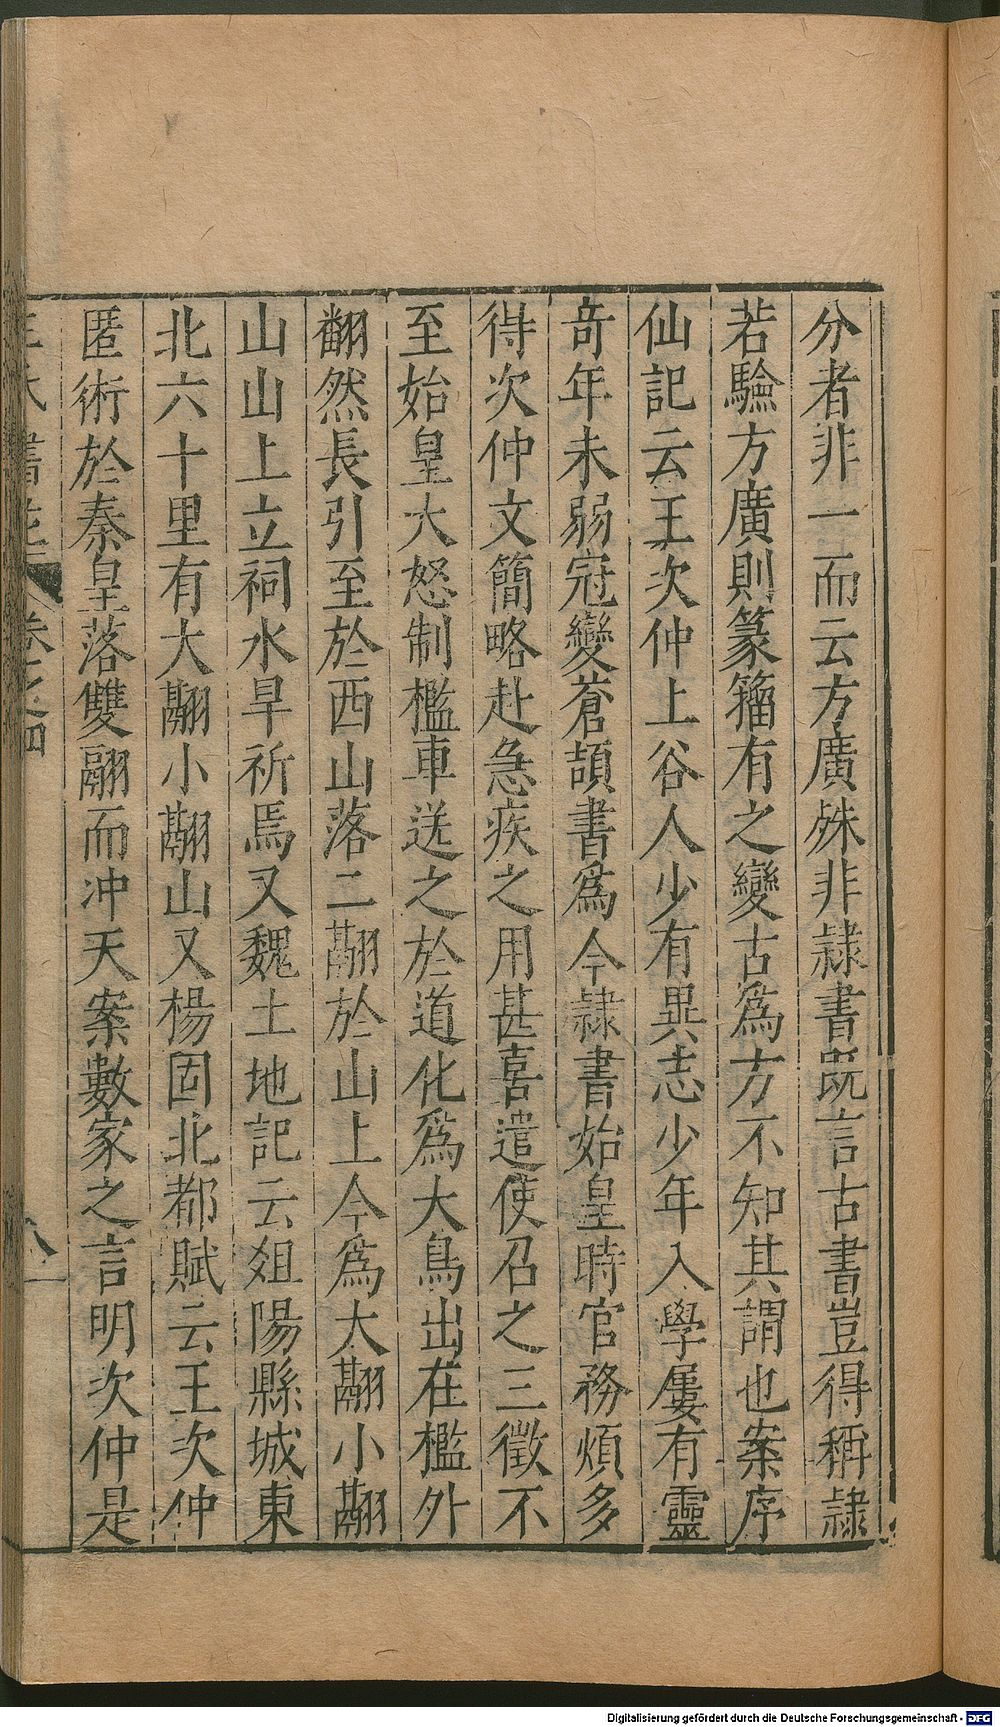 分者非一而云方廣殊非隷書既言古書豈得稱隷
若驗方廣則篆籀有之變古為方不知其謂也案序
仙記云王次仲上谷人少有異志少年入學屢有靈
奇年未弱冠變蒼頡書為今隷書始皇時官務煩多
得次仲文簡略赴急疾之用甚喜遣使召之三徵不
至始皇大怒制檻車送之於道化為大鳥出在檻外
翻然長引至於西山落二翮於山上今為大翮小翮
山山上立祠水旱祈焉又魏土地記云爼陽縣城東
北六十里有大翮小翮山又楊固北都賦云王次仲
匿術於秦皇落雙翮而冲天案數家之言明次仲是
卷之四
八
Digitalisierung gefördert durch die Deutsche Forschungsgemeinschaft - DFG